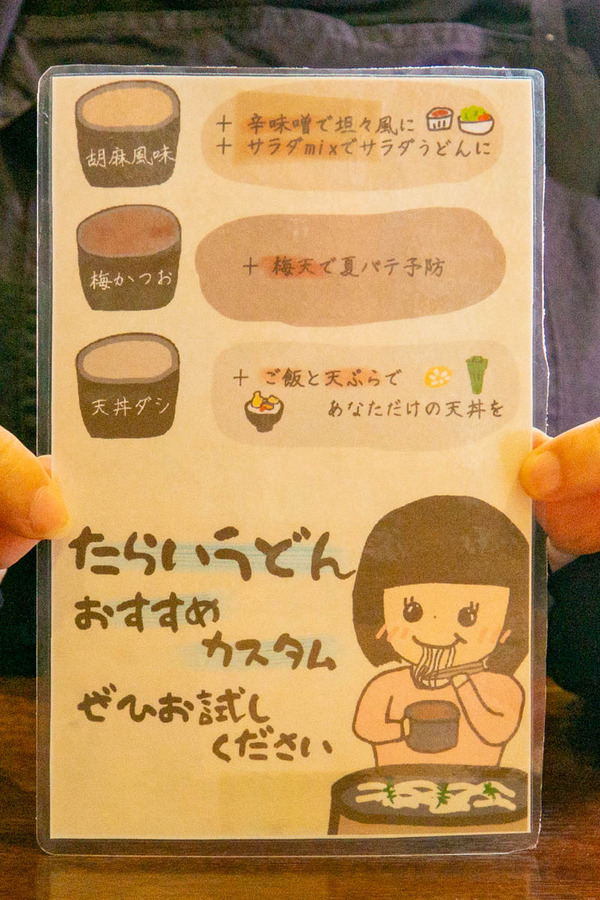 胡麻風味
+ 辛味噌で坦々風に
+ サラダmixでサラダうどんに
梅かつお
+ 梅天で夏バテ予防
天丼ダシ
+ ご飯と天ぷらで
あなただけの天丼を
たらいうどん
おすすめ
カスタム
ぜひお試し
ください